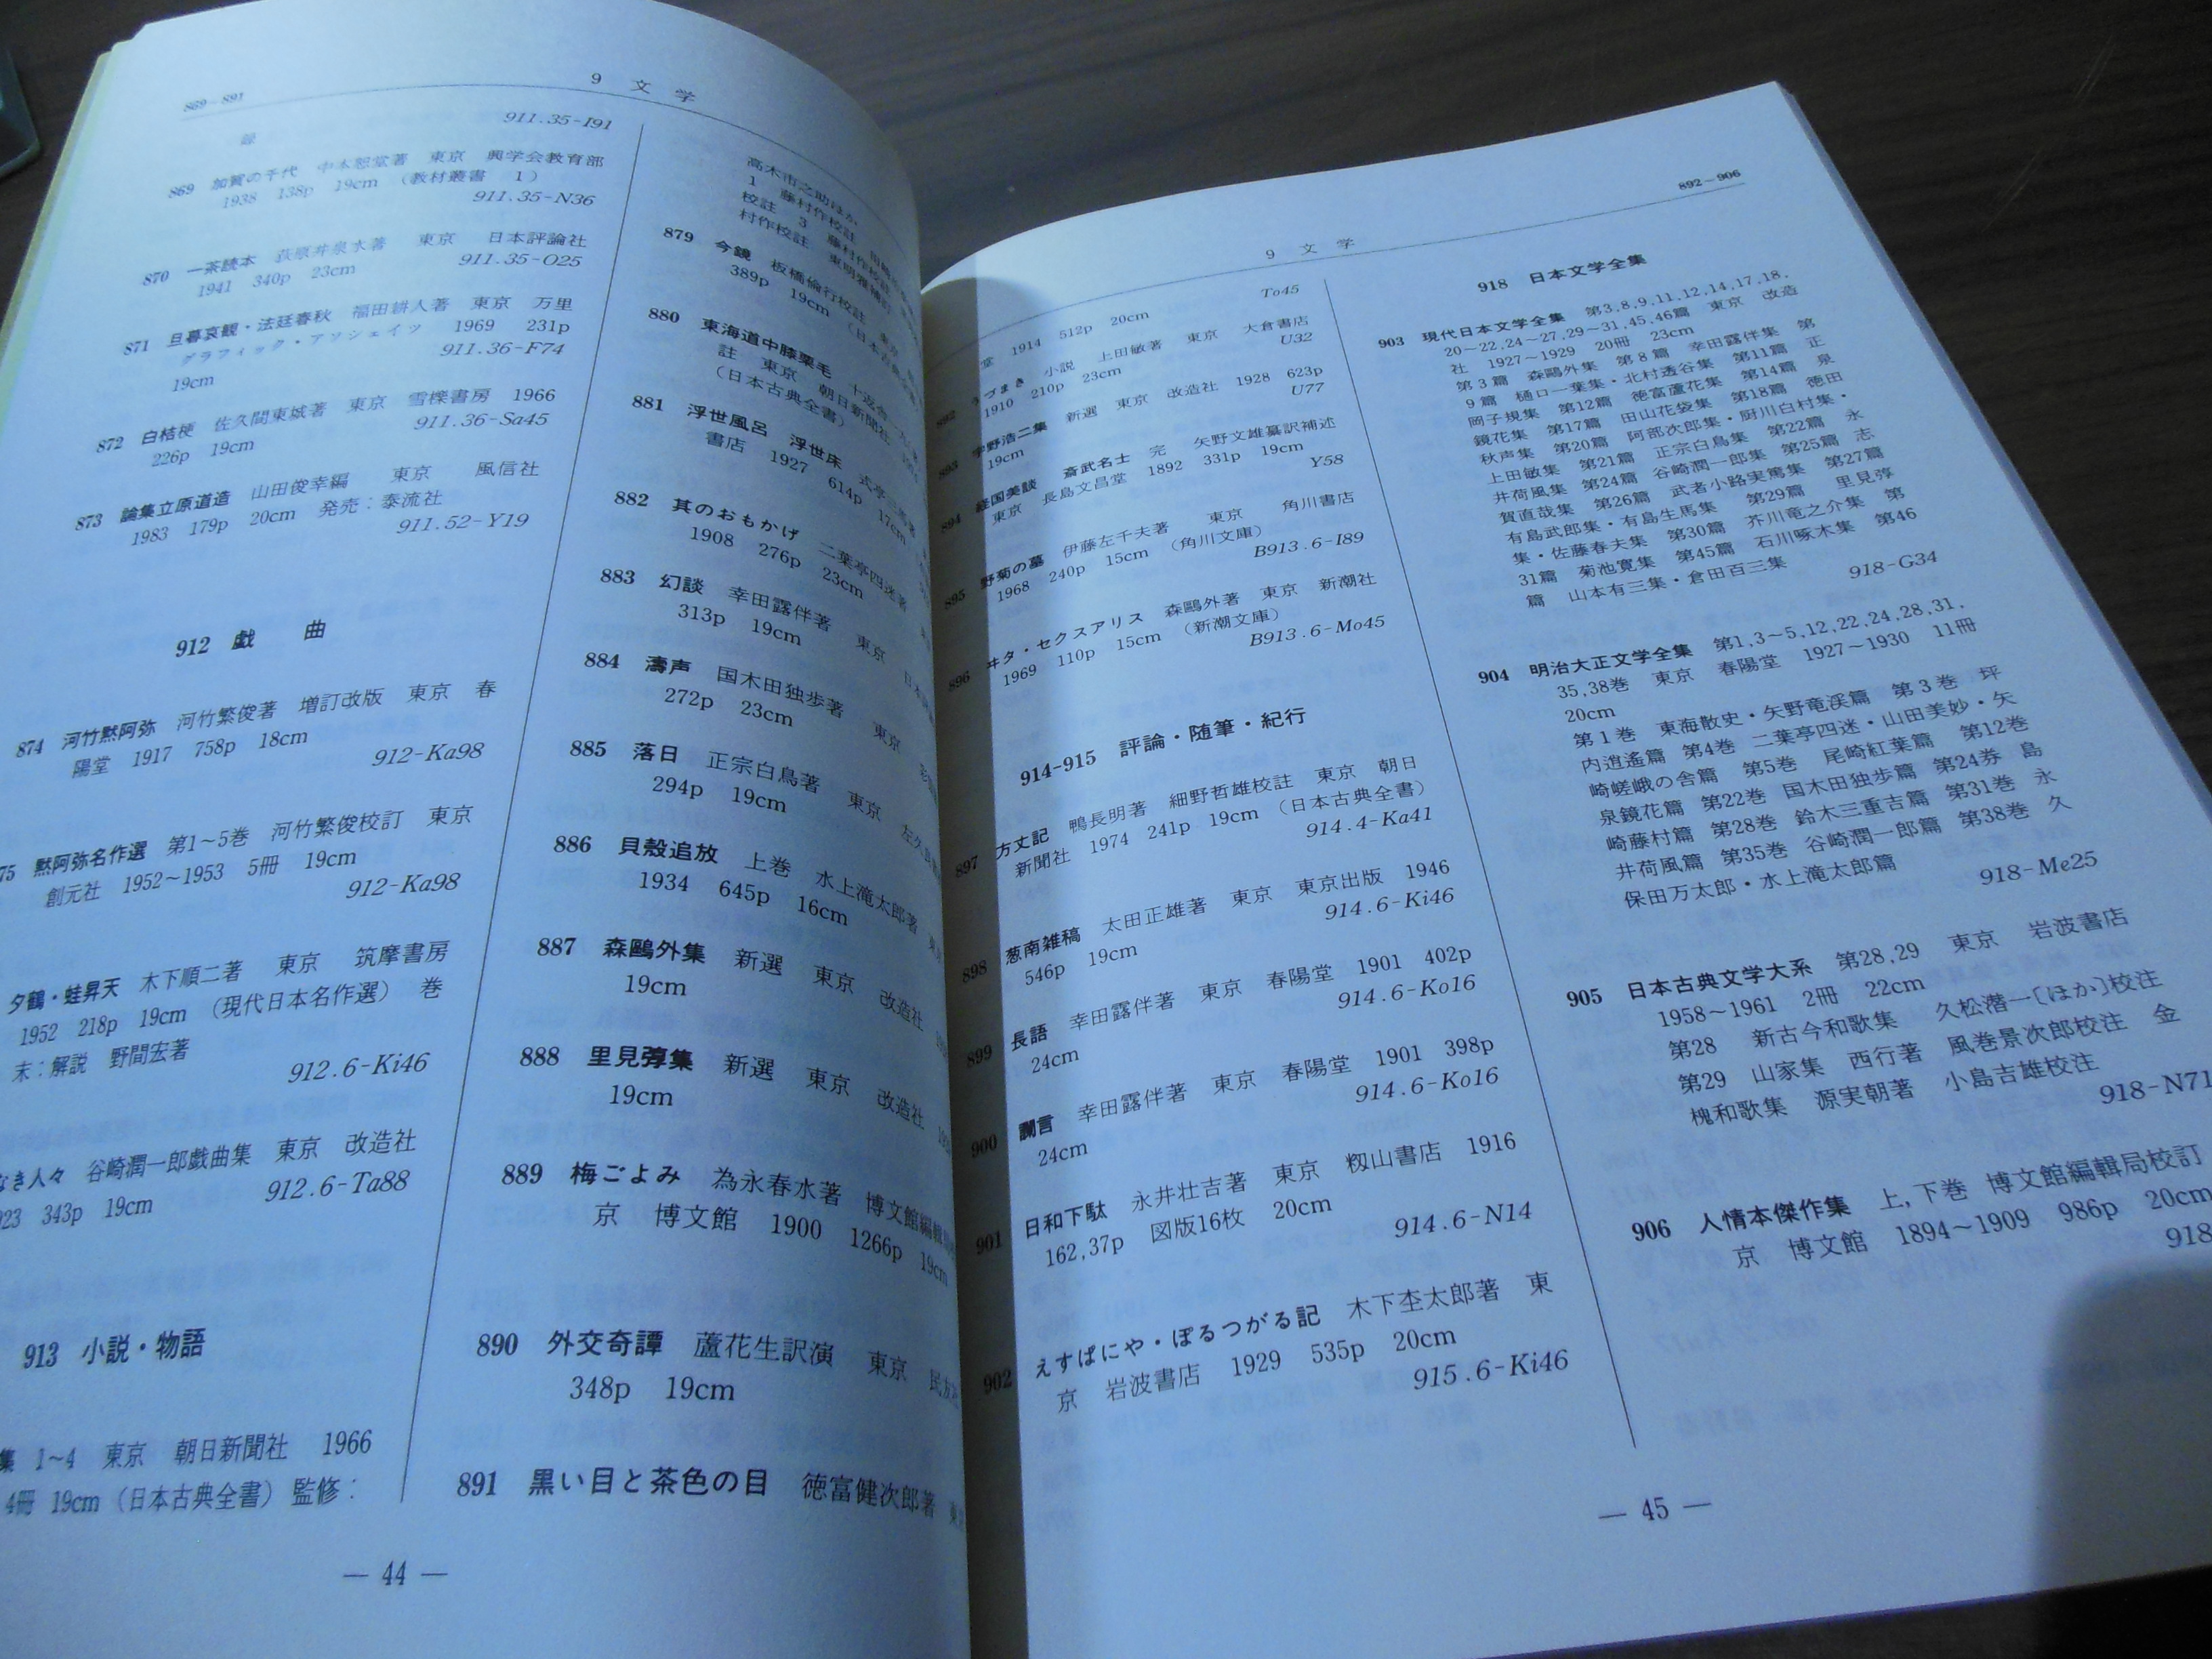 869-891
9 文 学
911.35-I91
869 加賀の千代 中本恕堂著 東京 興学会教育部
1938 138p 19cm (教材叢書 1)
911.35-N36
870 一茶読本 荻原井泉水著 東京 日本評論社
1941 340p 23cm
911.35-O25
871 旦暮哀観・法廷春秋 福田耕人著 東京 万里
グラフィック・アソシェイツ 1969 231p
19cm
911.36-F74
872 白桔梗 佐久間東城著 東京 雪檪書房 1966
226p 19cm
911.36-Sa45
873 論集立原道造 山田俊幸編 東京 風信社
1983 179p 20cm 発売:泰流社
911.52-Y19
912 戯 曲
874 河竹黙阿弥 河竹繁俊著 増訂改版 東京 春
陽堂 1917 758p 18cm
912-Ka98
75 黙阿弥名作選 第1~5巻 河竹繁俊校訂 東京
創元社 1952~1953 5冊 19cm
912-Ka98
夕鶴・蛙昇天 木下順二著 東京 筑摩書房
1952 218p 19cm (現代日本名作選) 巻
末:解説 野間宏著
912.6-Ki46
なき人々 谷崎潤一郎戯曲集 東京 改造社
923 343p 19cm
912.6-Ta88
913 小説・物語
集 1~4 東京 朝日新聞社 1966
4冊 19cm (日本古典全書) 監修:
高木市之助ほか
1 藤村作校註
校註 3 藤村作校註
村作校註
879 今鏡 板橋倫行校註
389p 19cm (日本古典全書)
880 東海道中膝栗毛 十返舎一九
註 東京 朝日新聞社
(日本古典全書)
881 浮世風呂 浮世床 式亭三馬著
書店 1927 614p 17cm
882 其のおもかげ 二葉亭四迷著
1908 276p 23cm
883 幻談 幸田露伴著 東京
313p 19cm
884 濤声 国木田独歩著 東京
272p 23cm
885 落日 正宗白鳥著 東京
294p 19cm
886 貝殻追放 上巻 水上滝太郎著
1934 645p 16cm
887 森鷗外集 新選 東京 改造社
19cm
888 里見弴集 新選 東京 改造社
19cm
889 梅ごよみ 為永春水著 博文館編輯
京 博文館 1900 1266p 19cm
890 外交奇譚 蘆花生訳演 東京
348p 19cm
891 黒い目と茶色の目 徳富健次郎著
— 44 —
892-906
9 文 学
To45
堂 1914 512p 20cm
892 うづまき 小説 上田敏著 東京 大倉書店
1910 210p 23cm
U32
893 宇野浩二集 新選 東京 改造社 1928 623p
19cm
U77
894 経国美談 斎武名士 完 矢野文雄纂訳補述
東京 長島文昌堂 1892 331p 19cm
Y58
895 野菊の墓 伊藤左千夫著 東京 角川書店
1968 240p 15cm (角川文庫)
B913.6-I89
896 ヰタ・セクスアリス 森鷗外著 東京 新潮社
1969 110p 15cm (新潮文庫)
B913.6-Mo45
914-915 評論・随筆・紀行
897 方丈記 鴨長明著 細野哲雄校註 東京 朝日
新聞社 1974 241p 19cm (日本古典全書)
914.4-Ka41
898 葱南雑稿 太田正雄著 東京 東京出版 1946
546p 19cm
914.6-Ki46
899 長語 幸田露伴著 東京 春陽堂 1901 402p
24cm
914.6-Ko16
900 讕言 幸田露伴著 東京 春陽堂 1901 398p
24cm
914.6-Ko16
901 日和下駄 永井壮吉著 東京 籾山書店 1916
162,37p 図版16枚 20cm
914.6-N14
902 えすぱにや・ぽるつがる記 木下杢太郎著 東
京 岩波書店 1929 535p 20cm
915.6-Ki46
918 日本文学全集
903 現代日本文学全集 第3,8,9,11,12,14,17,18,
20~22,24~27,29~31,45,46篇 東京 改造
社 1927~1929 20冊 23cm
第3篇 森鷗外集 第8篇 幸田露伴集 第
9篇 樋口一葉集・北村透谷集 第11篇 正
岡子規集 第12篇 徳富蘆花集 第14篇 泉
鏡花集 第17篇 田山花袋集 第18篇 徳田
秋声集 第20篇 阿部次郎集・厨川白村集・
上田敏集 第21篇 正宗白鳥集 第22篇 永
井荷風集 第24篇 谷崎潤一郎集 第25篇 志
賀直哉集 第26篇 武者小路実篤集 第27篇
有島武郎集・有島生馬集 第29篇 里見弴
集・佐藤春夫集 第30篇 芥川竜之介集 第
31篇 菊池寛集 第45篇 石川啄木集 第46
篇 山本有三集・倉田百三集
918-G34
904 明治大正文学全集 第1,3~5,12,22,24,28,31,
35,38巻 東京 春陽堂 1927~1930 11冊
20cm
第1巻 東海散史・矢野竜渓篇 第3巻 坪
内逍遙篇 第4巻 二葉亭四迷・山田美妙・矢
崎嵯峨の舎篇 第5巻 尾崎紅葉篇 第12巻
泉鏡花篇 第22巻 国木田独歩篇 第24券 島
崎藤村篇 第28巻 鈴木三重吉篇 第31巻 永
井荷風篇 第35巻 谷崎潤一郎篇 第38巻 久
保田万太郎・水上滝太郎篇
918-Me25
905 日本古典文学大系 第28,29 東京 岩波書店
1958~1961 2冊 22cm
第28 新古今和歌集 久松潜一〔ほか〕校注
第29 山家集 西行著 風巻景次郎校注 金
槐和歌集 源実朝著 小島吉雄校注
918-N71
906 人情本傑作集 上,下巻 博文館編輯局校訂
京 博文館 1894~1909 986p 20cm
918
— 45 —